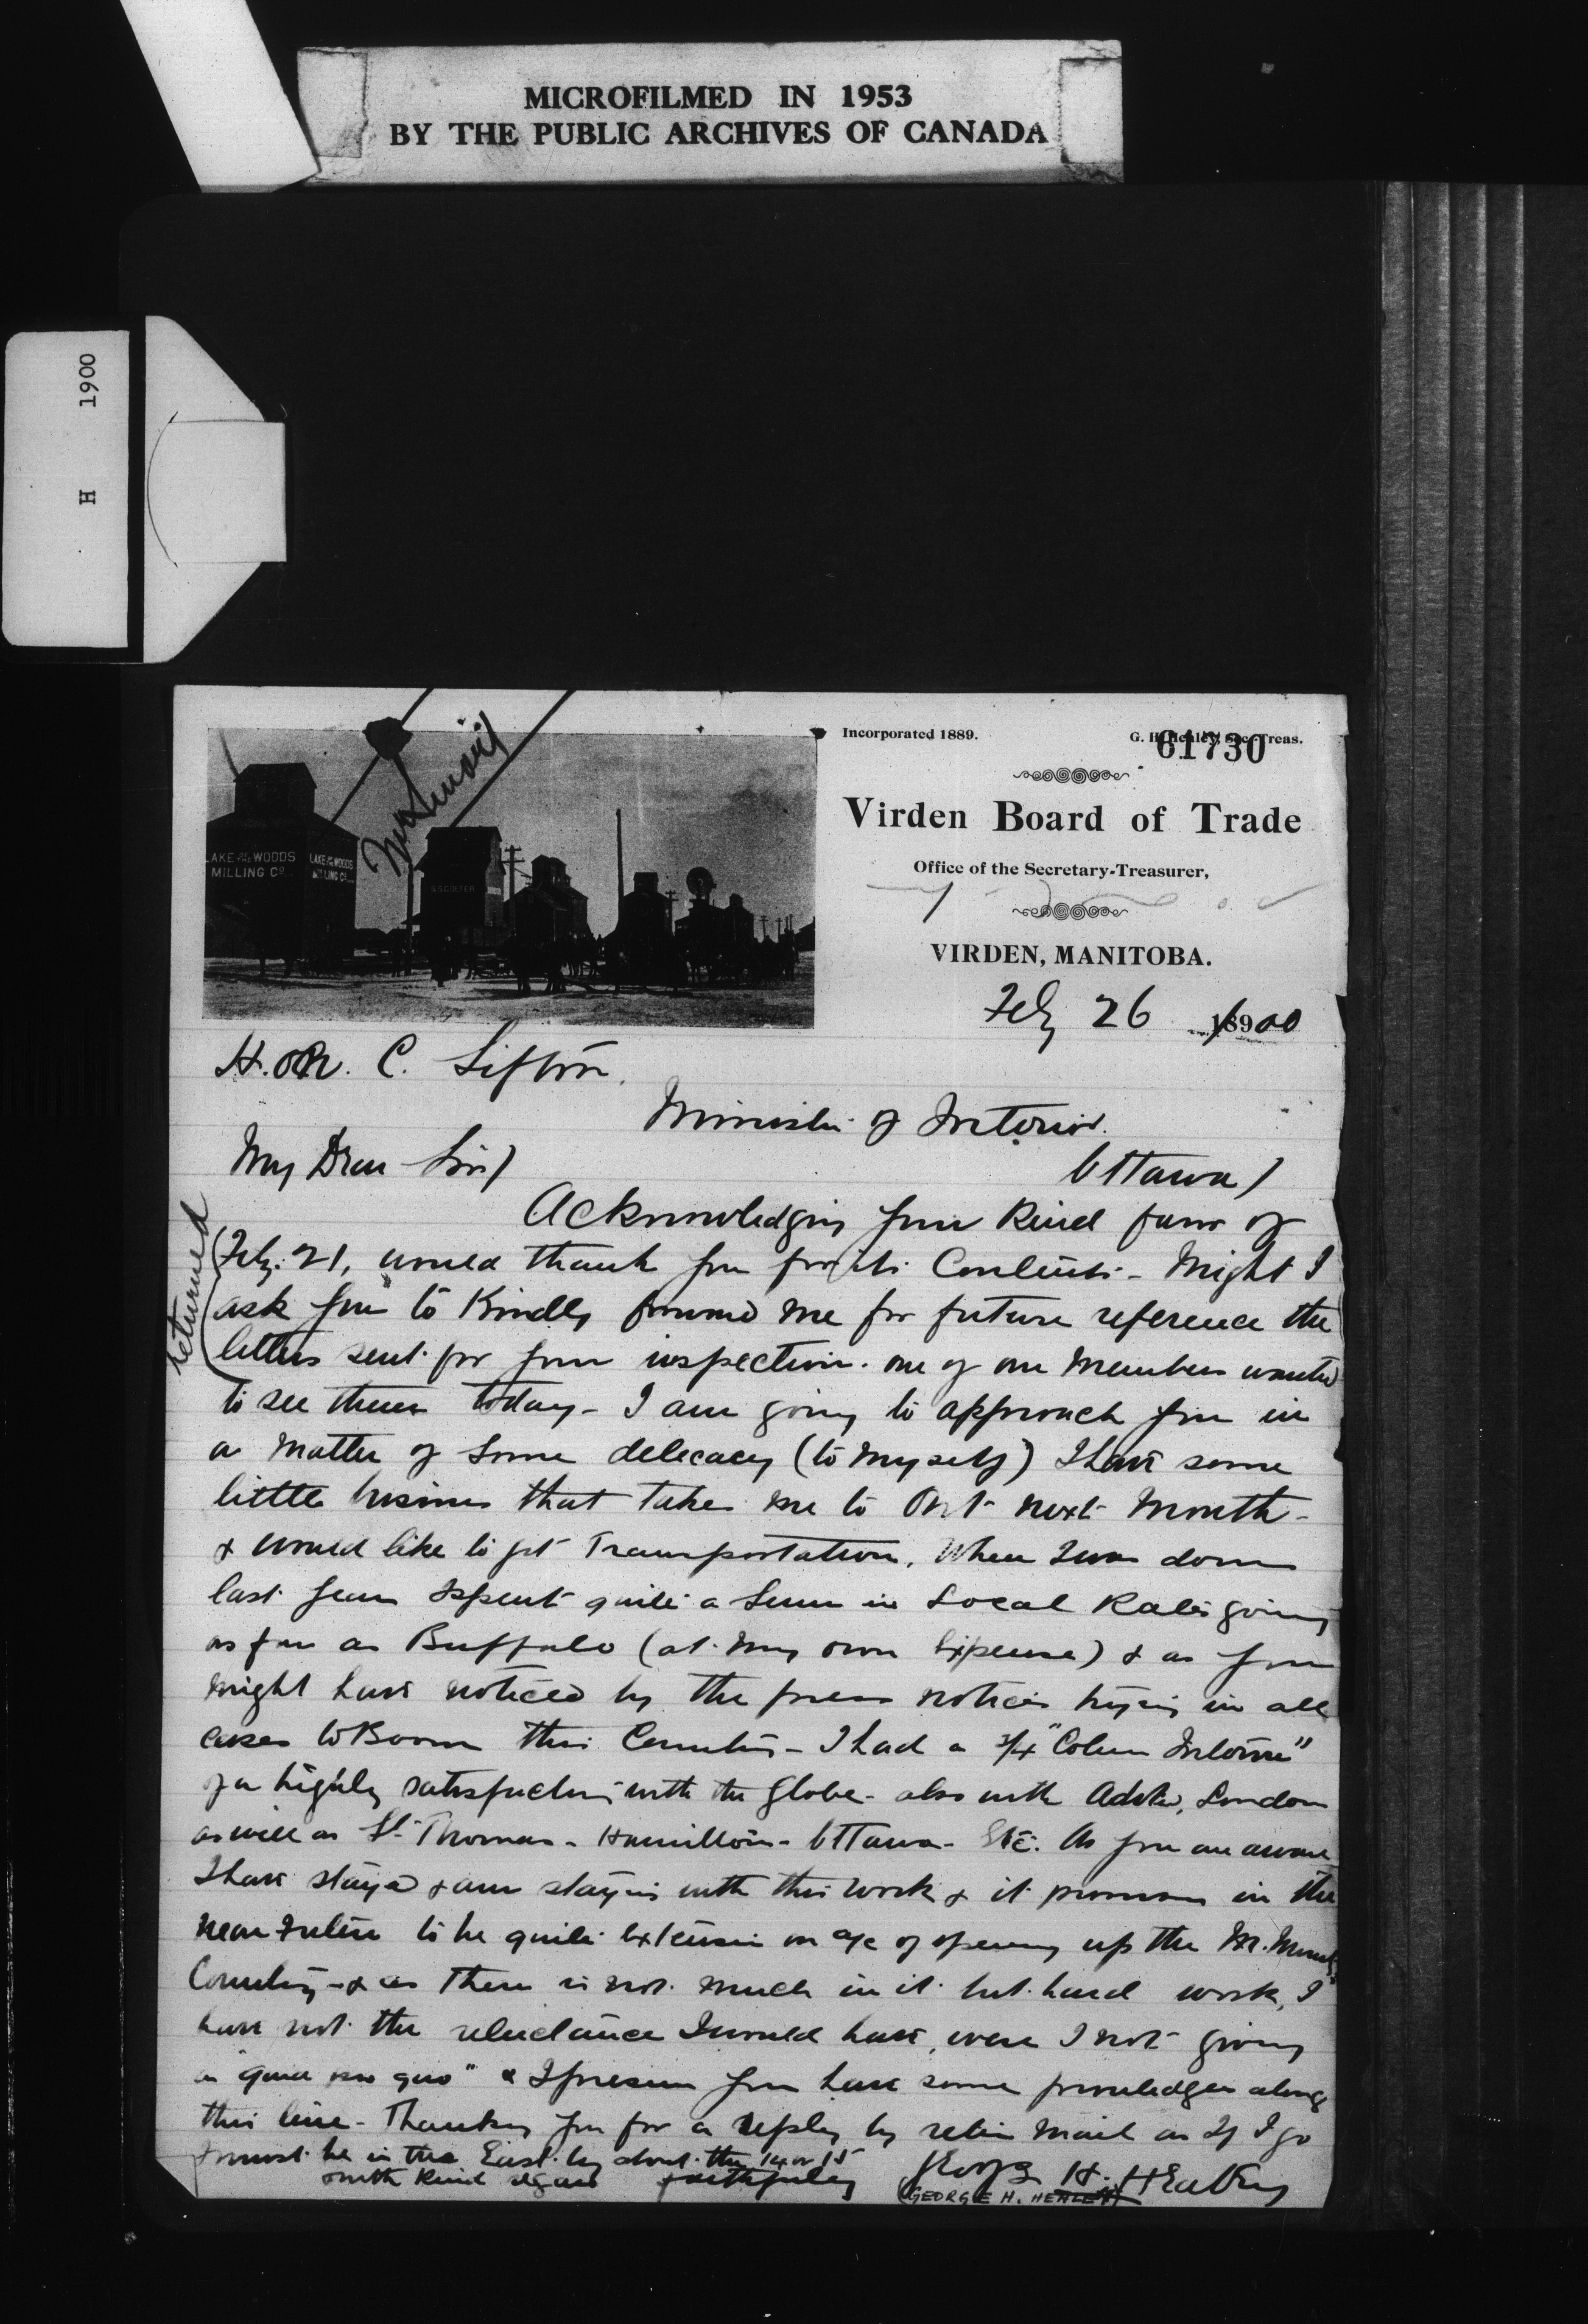 MICROFILMED IN 1953
BY THE PUBLIC ARCHIVES OF CANADA
H 1900
Incorporated 1889.
G. H. Healey, Sec.-Treas.
61730
Virden Board of Trade
Office of the Secretary-Treasurer,
VIRDEN, MANITOBA.
LAKE OF THE WOODS MILLING CO
LAKE OF THE WOODS MILLING CO
Feby 26 1900
Hon. C. Sifton.
Minister of Interior.
My Dear Sir/
Ottawa/
returned
Acknowledging your kind favor of
Feby. 21, would thank you for its Contents - Might I
ask you to Kindly forward me for future reference the
letters sent for your inspection. one of our Members wanted
to see them today - I am going to approach you in
a matter of some delecacy (to myself) I have some
little business that takes me to Ont next Month -
& would like to get Transportation. When I was down
last year I spent quite a sum in Local Rates going
as far as Buffalo (at my own Expense) & as you
might have noticed by the press notices trying in all
cases to Boom this Country - I had a 3/4 "Column Interview"
of a highly satisfactory with the Globe - also with Advtr, London
as well as St. Thomas - Hamilton - Ottawa - Etc. As you are aware
I have stayed & am staying with this work & it promises in the
near future to be quite Extensive on a/c of opening up the Mt.
Country - & as there is not much in it but hard work, I
have not the reluctance I would have, were I not giving
a "quid pro quo" & I presume you have some priviledges along
this line - Thanking you for a reply by return mail as If I go
I must be in the East by about the 14 or 15
with Kind regards faithfully George H. Healey
(GEORGE H. HEALEY)